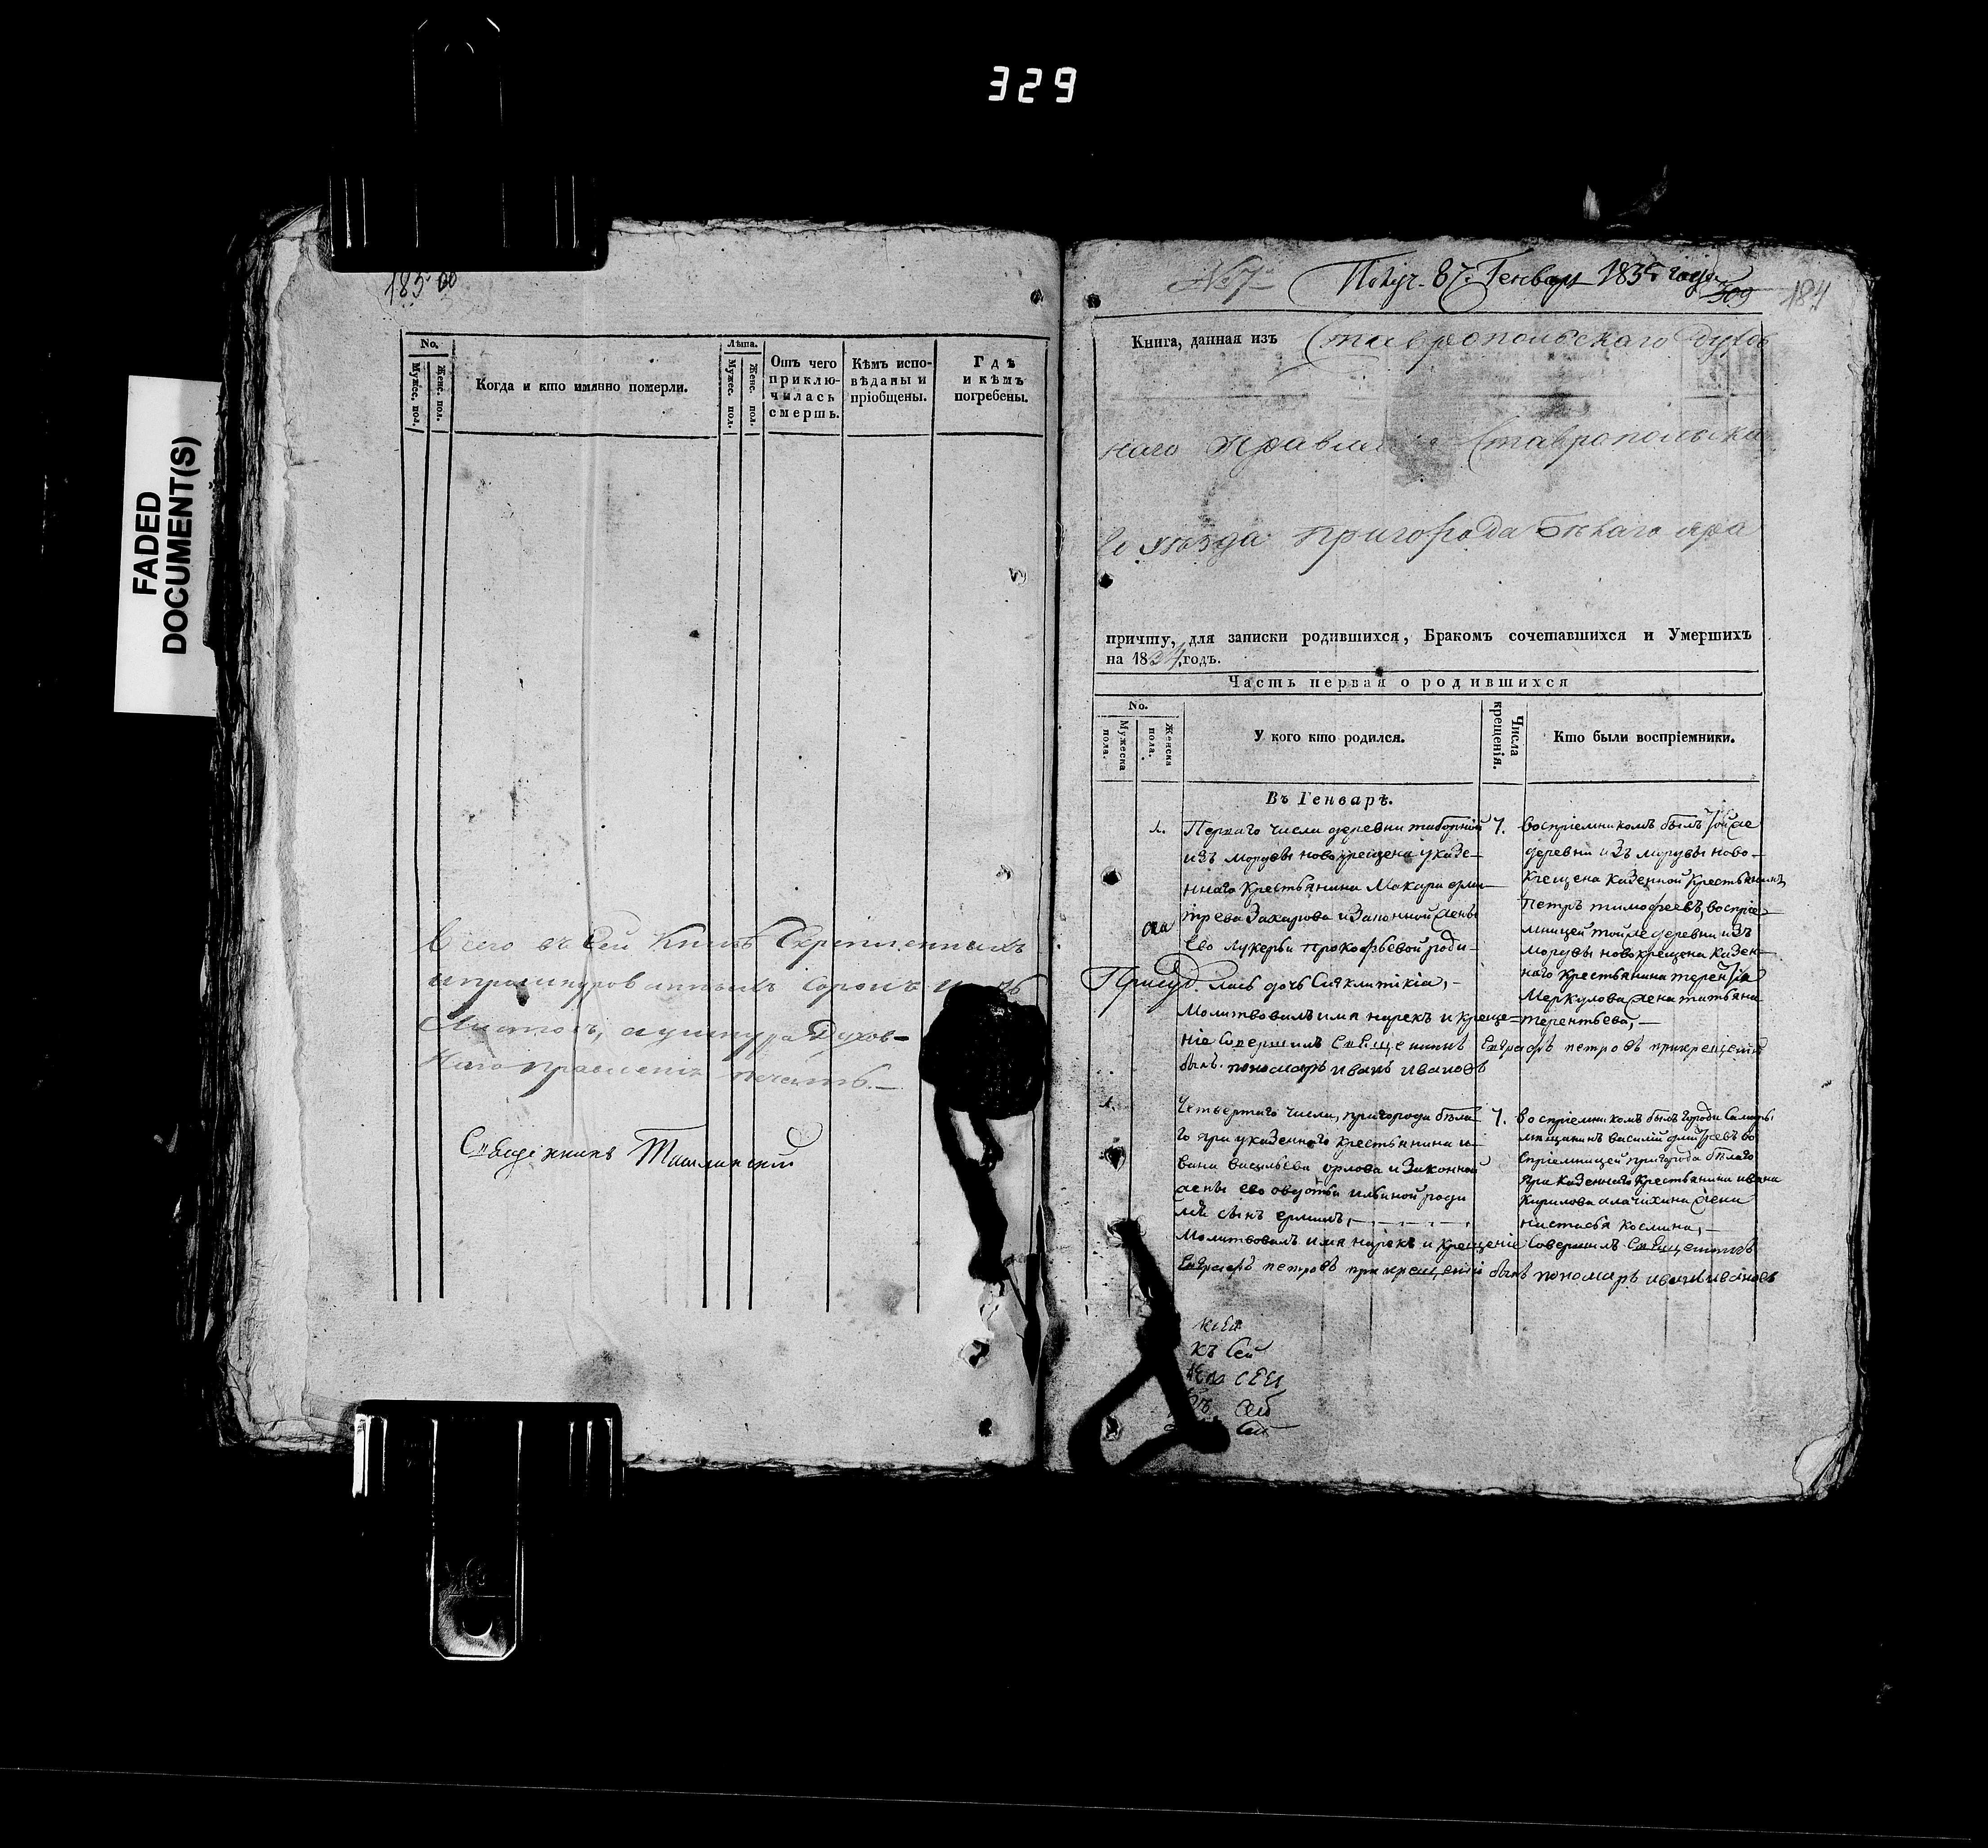 329
FADED
DOCUMENT(S)
183 об
No.
Мужес. пол.
Женс. пол.
Когда и кто имянно померли.
Лѣта.
Мужес. пол.
Женс. пол.
Отъ чего
приклю-
чилась
смерть.
Кѣмъ испо-
вѣданы и
пріобщены.
Гдѣ
и кѣмъ
погребены.
Всего въ сей книгѣ скрепленныхъ
и прошнурованныхъ сорокъ
Листовъ, а у шнура Духов-
наго правленія печать.
Священникъ
№ 7 Получ. 87. Генваря 1835 года
309
184
Книга, данная изъ Ставропольскаго Духов
наго Правленія Ставропольска
го уѣзда пригорода Бѣлаго яра
причту, для записки родившихся, Бракомъ сочетавшихся и Умершихъ
на 1834 годъ.
Часть первая о родившихся
No.
Мужеска пола.
Женска пола.
У кого кто родился.
Числа крещенія.
Кто были воспріемники.
Въ Генварѣ.
1.
Перваго числа деревни таборной
изъ мордвы новокрещена удѣ-
ннаго Крестьянина Макара дми-
трева Захарова и Законной жены
Ево лукерьи прокофьевой роди-
лась дочь Сигклитикіа, -
Молитвовалъ имя нарекъ и креще-
ніе Совершилъ Священникъ Евграфъ петровъ при крещеніи
былъ пономарь иванъ ивановъ
7.
воспріемникомъ былъ той же
деревни изъ мордвы ново-
крещена казенной Крестьянинъ
Петръ тимофеевъ, воспріе-
мницей той же деревни изъ
мордвы новокрещена казен-
наго Крестьянина терентіа
Меркулова жена татьяна
терентьева, -
1.
Четвертаго числа, пригорода бѣла
го яра удѣннаго крестьянина и-
вана васильева орлова и Законной
жены его овдотьи ильиной роди
лся сынъ ермилъ, -
Молитвовалъ имя нарекъ и крещеніе Совершилъ Священникъ
Евграфъ петровъ при крещеніи былъ пономарь иванъ ивановъ
7.
воспріемникомъ былъ города Самары
мещанинъ василій дмитревъ во
спріемницей пригорода бѣлаго
яра казеннаго Крестьянина ивана
Кирилова жена
настасья Космина, -
къ сей
сей
сей